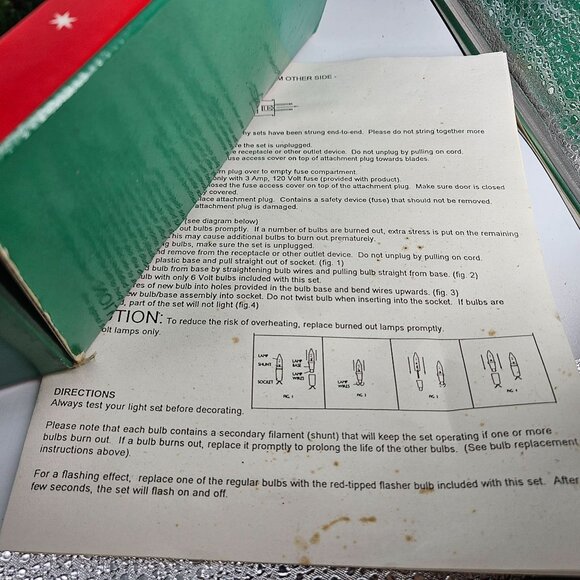 M OTHER SIDE -
hy sets have been strung end-to-end. Please do not string together more
re the set is unplugged.
e receptacle or other outlet device. Do not unplug by pulling on cord.
use access cover on top of attachment plug towards blades.
n plug over to empty fuse compartment.
only with 3 Amp, 120 Volt fuse (provided with product).
osed the fuse access cover on top of the attachment plug. Make sure door is closed
y covered.
lace attachment plug. Contains a safety device (fuse) that should not be removed.
attachment plug is damaged.
(see diagram below)
out bulbs promptly. If a number of bulbs are burned out, extra stress is put on the remaining
his may cause additional bulbs to burn out prematurely.
ng bulbs, make sure the set is unplugged.
nd remove from the receptacle or other outlet device. Do not unplug by pulling on cord.
plastic base and pull straight out of socket. (fig. 1)
d bulb from base by straightening bulb wires and pulling bulb straight from base. (fig. 2)
ulb with only 6 Volt bulbs included with this set.
es of new bulb into holes provided in the bulb base and bend wires upwards. (fig. 3)
ew bulb/base assembly into socket. Do not twist bulb when inserting into the socket. If bulbs are
, part of the set will not light (fig.4)
TION: To reduce the risk of overheating, replace burned out lamps promptly.
olt lamps only.
LAMP
SHUNT
SOCKET
LAMP
BASE
LAMP
WIRES
FIG. 1
LAMP
WIRES
FIG. 2
FIG. 3
FIG. 4
DIRECTIONS
Always test your light set before decorating.
Please note that each bulb contains a secondary filament (shunt) that will keep the set operating if one or more
bulbs burn out. If a bulb burns out, replace it promptly to prolong the life of the other bulbs. (See bulb replacement
instructions above).
For a flashing effect, replace one of the regular bulbs with the red-tipped flasher bulb included with this set. After
few seconds, the set will flash on and off.